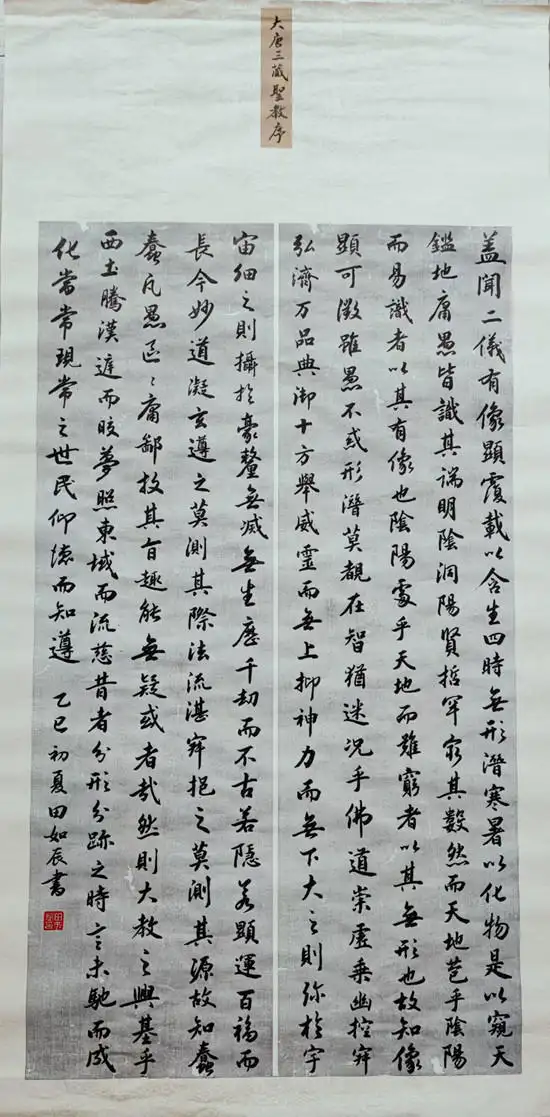 大唐三藏聖教序
盖聞二儀有像顯覆載以含生四時無形潛寒暑以化物是以窺天
鑑地庸愚皆識其端明陰洞陽賢哲罕窮其數然而天地苞乎陰陽
而易識者以其有像也陰陽處乎天地而難窮者以其無形也故知像
顯可徵雖愚不惑形潛莫覩在智猶迷况乎佛道崇虛乗幽控寂
弘濟万品典御十方舉威靈而無上抑神力而無下大之則弥於宇
宙細之則攝於豪釐無滅無生歷千劫而不古若隱若顯運百福而
長今妙道凝玄遵之莫測其際法流湛寂挹之莫測其源故知蠢
蠢凡愚區〻庸鄙投其旨趣能無疑或者哉然則大教之興基乎
西土騰漢庭而皎夢照東域而流慈昔者分形分跡之時言未馳而成
化當常現常之世民仰德而知遵 乙巳初夏田如辰書